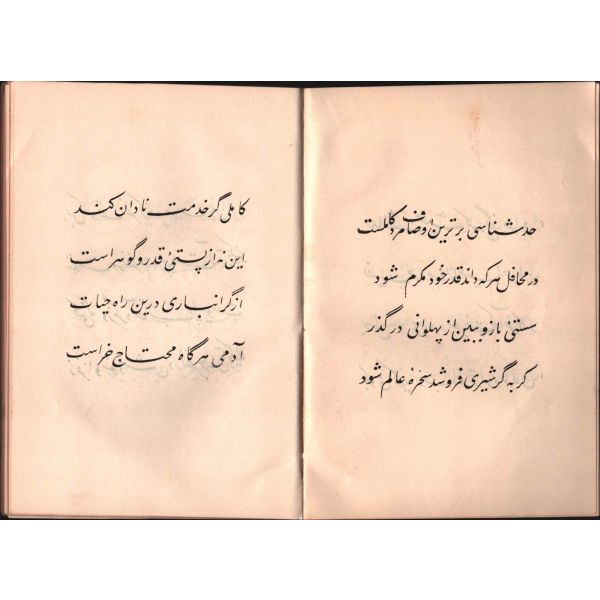 حدشناسی برترین اوصاف مرد کاملست
در محافل هر که داند قدر خود مکرم شود
سستئ بازو ببین از پهلوانی در گذر
گربه گر شیری فروشد سخرهٔ عالم شود
کاملی گر خدمت نادان کند
این نه از پستئ قدر و گوهر است
از گرانباری درین راه حیات
آدمی هر گاه محتاج خر است